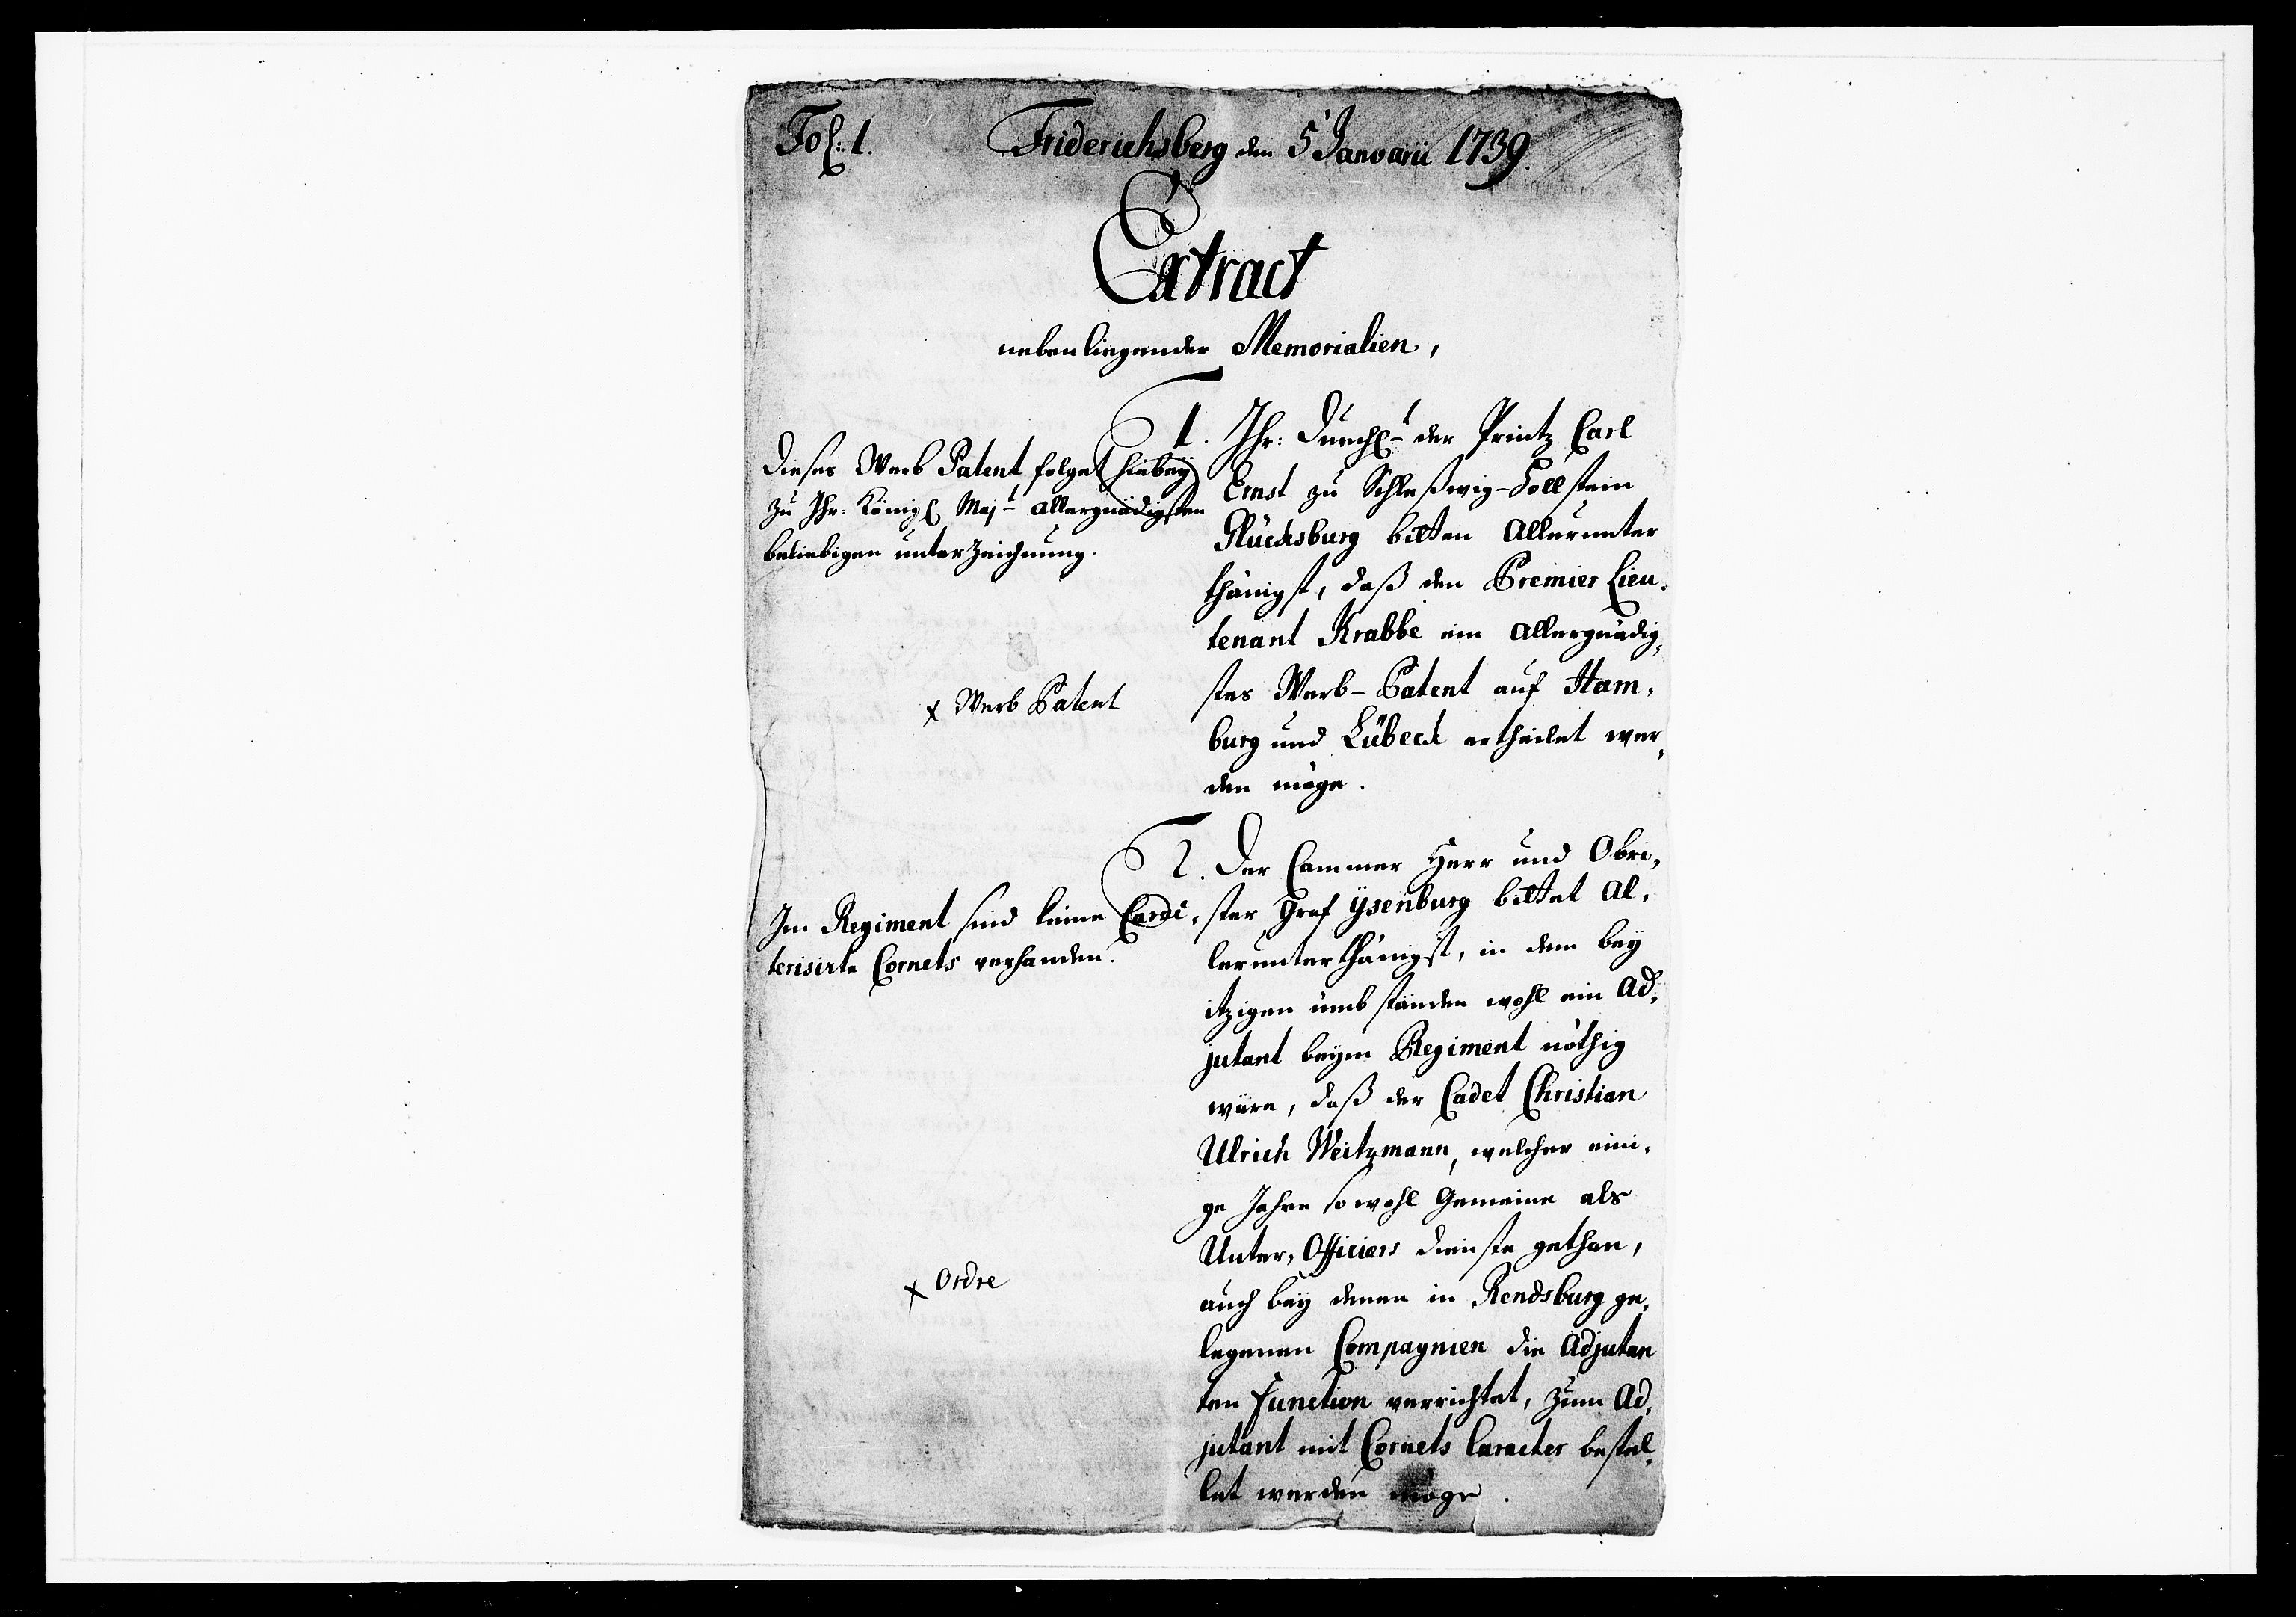 Fol: 1.
Friderichsberg den 5 Januarii 1739.
Extract
nebenliegender Memorialien,
1. Ihr: Durchl. der Printz Carl
Ernst zu Schleßwig-Hollstein
Glücksburg bitten allerunter
thänigst, daß den Premier Lieu,
tenant Krabbe ein allergnädig,
stes Werb-Patent auf Ham,
burg und Lübeck ertheilet wer,
den möge.
Dieses Werb Patent, folget hiebey
zu Ihr: Königl Maj.t allergnädigsten
beliebigen unterzeichnung.
x Werb Patent
2. Der Cammer Herr und Obri,
ster Graf ÿsenburg bittet al,
lerunterthänigst, in dem beÿ
itzigen umbständen wohl ein Ad,
jutant beym Regiment nöthig
wäre, daß der Cadet Christian
Ulrich Weitzmann, welcher eini,
ge Jahre sowohl Gemeine als
Unter, Officiers dienste gethan,
auch beÿ denen in Rendsburg ge,
legenen Compagnien die Adjutan
ten Function verrichtet, zum Ad,
jutant mit Cornets Caracter bestel,
let werden möge.
Im Regiment sind keine
terisirte Cornets verhanden.
x Ordre